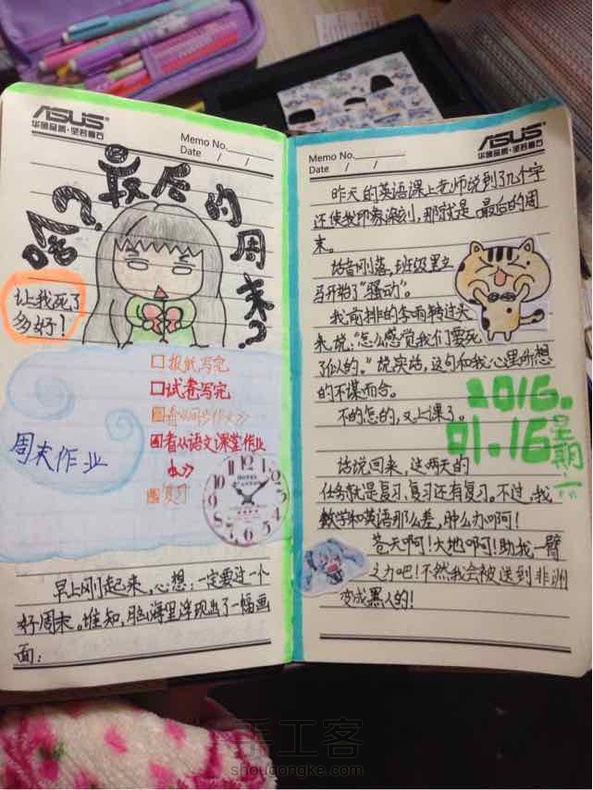 ASUS
华硕品质·坚若磐石
Memo No.
Date / /
啥?最后的周末?
让我死了
多好!
报纸写完
试卷写完
看从同步作业>>
看从语文课堂作业
>>
复习
周末作业
早上刚起来,心想:一定要过一个
好周末。谁知,脑海里浮现出了一幅画
面:
ASUS
华硕品质·坚若磐石
Memo No.
Date / /
昨天的英语课上老师说到了几个字
还使我印象深刻,那就是 最后的周
末。
话音刚落,班级里立
马开始了“骚动”。
我前排的李雨转过头
来,说:“怎么感觉我们要死
了似的。”说实话,这句和我心里所想
的不谋而合。
不的怎的,又上课了。
2016.
01.16
星期一
话说回来,这两天的
任务就是复习、复习还有复习。不过,我
数学和英语那么差,肿么办啊!
苍天啊!大地啊!助我一臂
之力吧!不然我会被送到非洲
变成黑人的!
手工客
shougongke.com